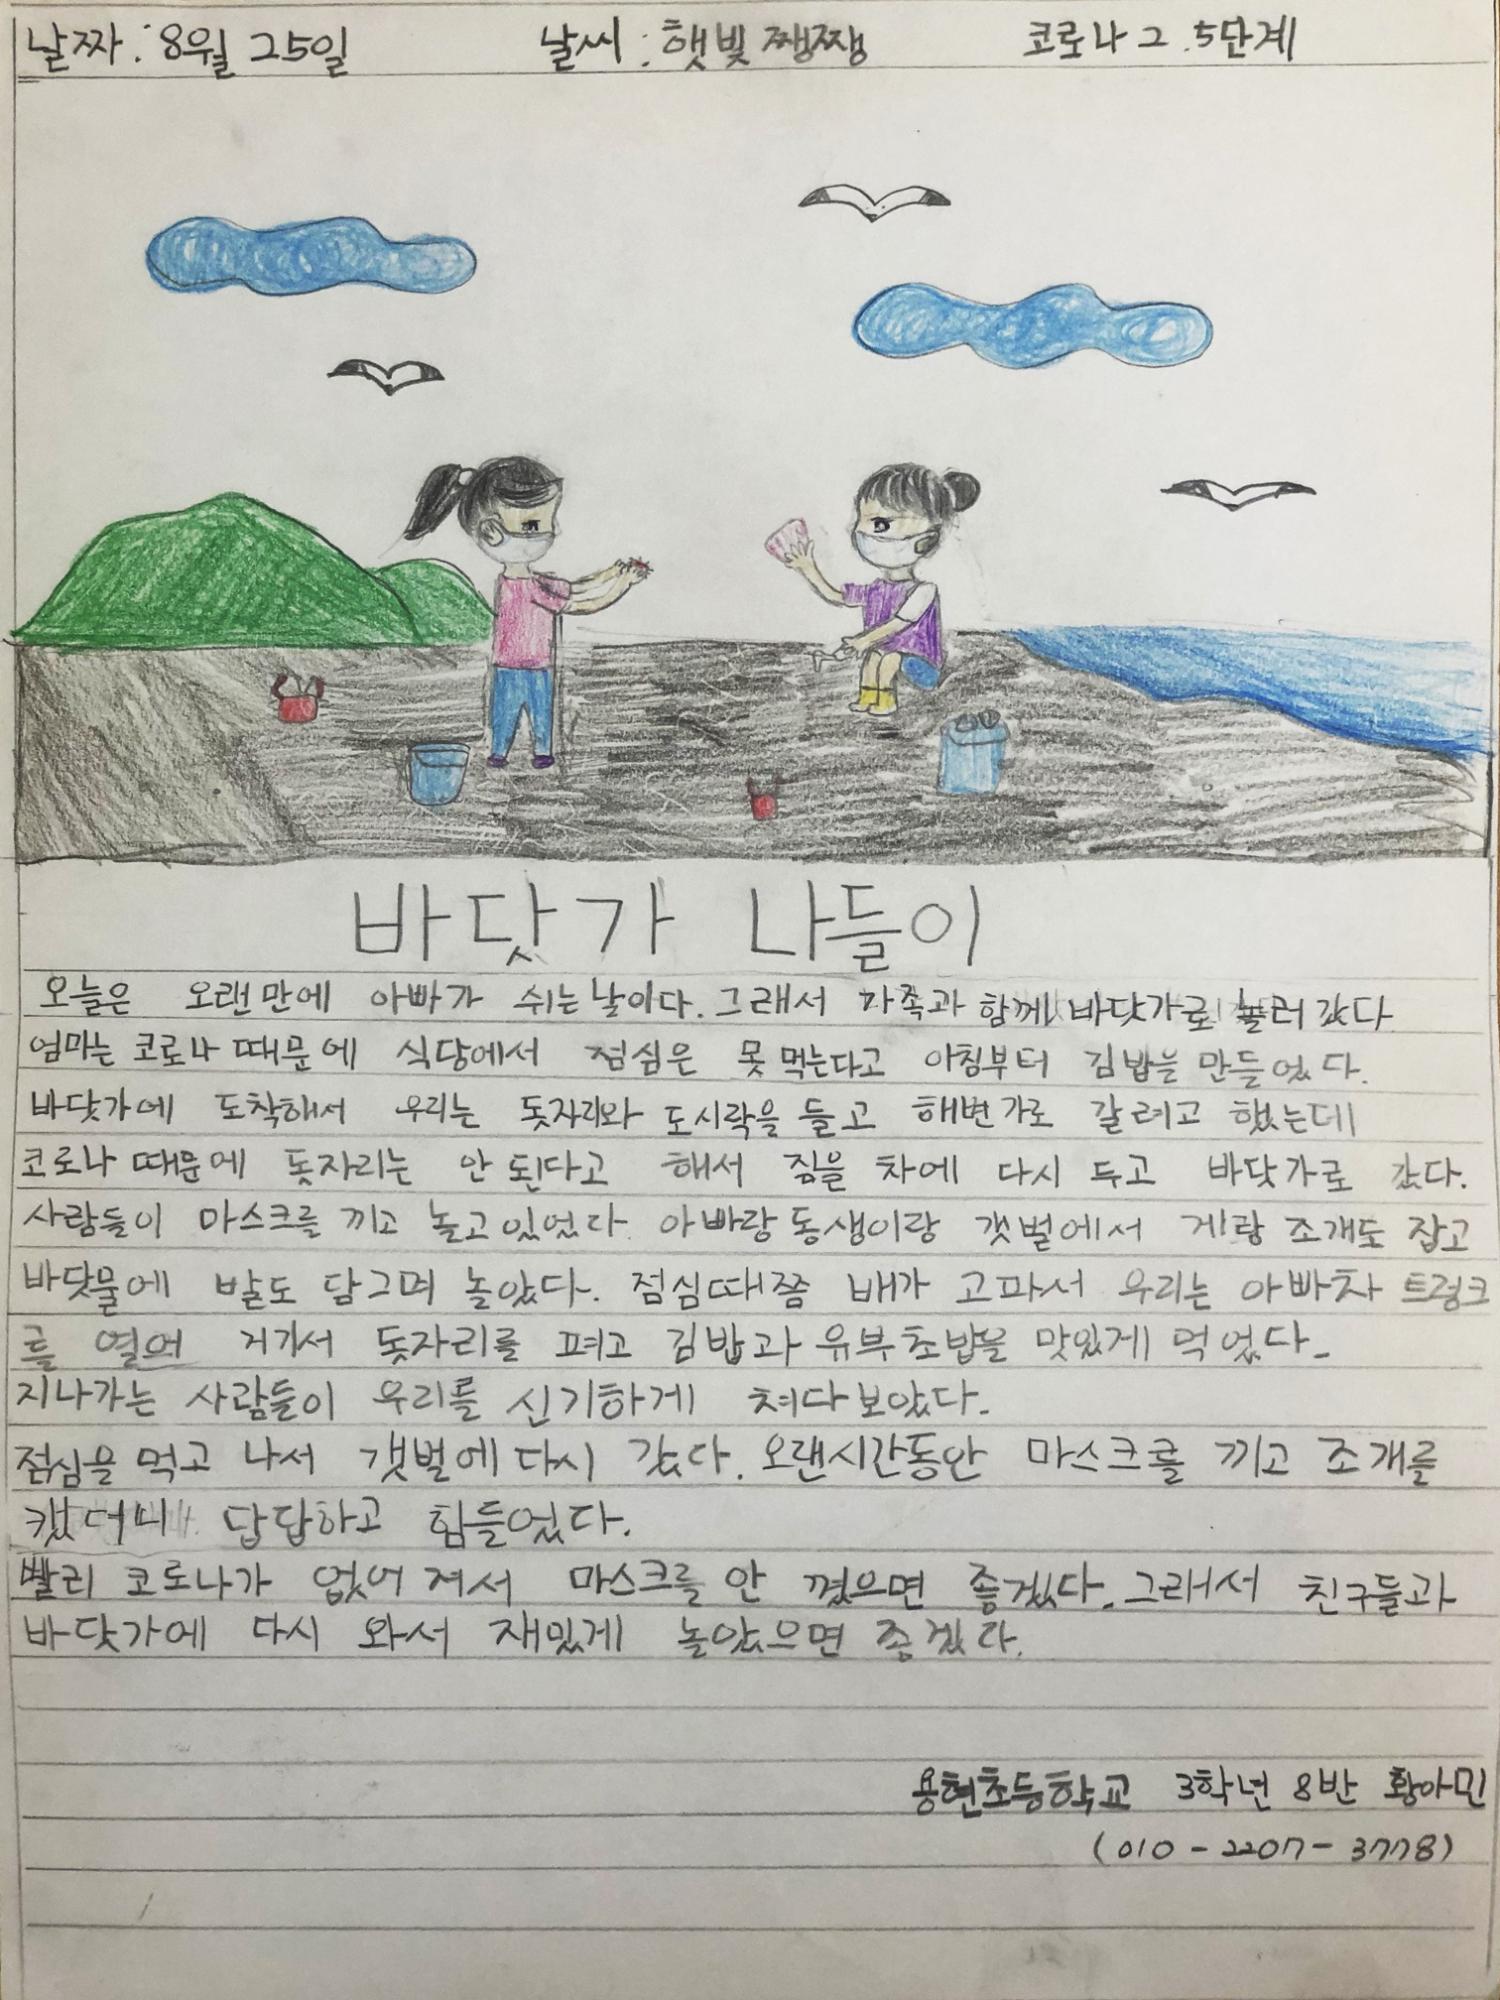 날짜 : 8월 25일 날씨 : 햇빛 쨍쨍 코로나 2.5단계
바닷가 나들이
오늘은 오랜만에 아빠가 쉬는날이다. 그래서 가족과 함께 바닷가로 놀러 갔다
엄마는 코로나 때문에 식당에서 점심은 못 먹는다고 아침부터 김밥을 만들었다.
바닷가에 도착해서 우리는 돗자리와 도시락을 들고 해변가로 갈려고 했는데
코로나 때문에 돗자리는 안 된다고 해서 짐을 차에 다시 두고 바닷가로 갔다.
사람들이 마스크를 끼고 놀고있었다. 아빠랑 동생이랑 갯벌에서 게랑 조개도 잡고
바닷물에 발도 담그며 놀았다. 점심때쯤 배가 고파서 우리는 아빠차 트렁크
를 열어 거기서 돗자리를 펴고 김밥과 유부초밥을 맛있게 먹었다.
지나가는 사람들이 우리를 신기하게 쳐다보았다.
점심을 먹고 나서 갯벌에 다시 갔다. 오랜시간동안 마스크를 끼고 조개를
캤더니 답답하고 힘들었다.
빨리 코로나가 없어져서 마스크를 안 꼈으면 좋겠다. 그래서 친구들과
바닷가에 다시 와서 재밌게 놀았으면 좋겠다.
용현초등학교 3학년 8반 황아민
(010-2207-3778)